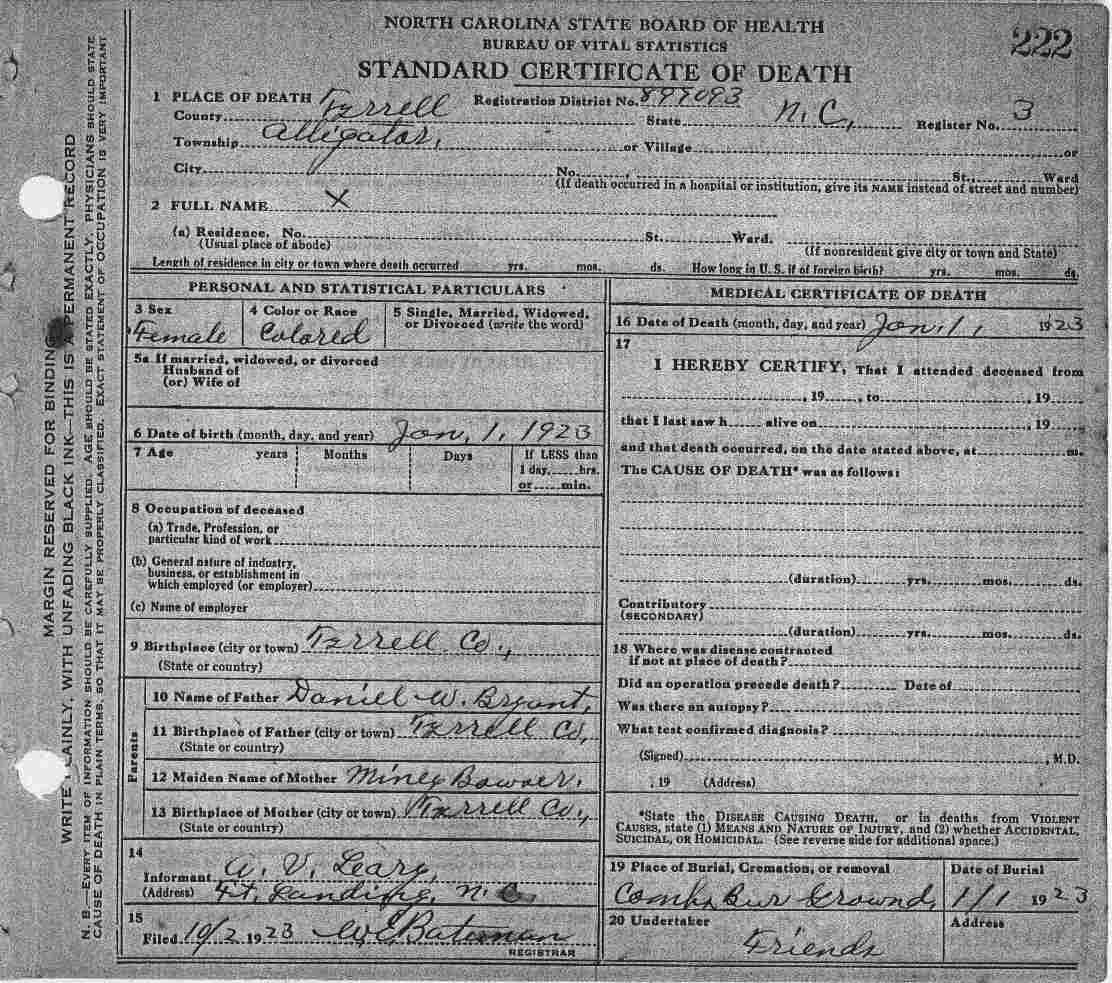 NORTH CAROLINA STATE BOARD OF HEALTH
BUREAU OF VITAL STATISTICS
STANDARD CERTIFICATE OF DEATH
222
1 PLACE OF DEATH
County Tyrrell Registration District No. 899093 State N.C, Register No. 3
Township Alligator, or Village or
City No. , St., Ward
(If death occurred in a hospital or institution, give its NAME instead of street and number)
2 FULL NAME X
(a) Residence, No. St. Ward.
(Usual place of abode) (If nonresident give city or town and State)
Length of residence in city or town where death occurred yrs. mos. ds. How long in U. S. if of foreign birth? yrs. mos. ds.
PERSONAL AND STATISTICAL PARTICULARS
3 Sex Female
4 Color or Race Colored
5 Single, Married, Widowed, or Divorced (write the word)
5a If married, widowed, or divorced
Husband of
(or) Wife of
6 Date of birth (month, day, and year) Jan. 1. 1923
7 Age years Months Days If LESS than
1 day, hrs.
or min.
8 Occupation of deceased
(a) Trade, Profession, or
particular kind of work
(b) General nature of industry,
business, or establishment in
which employed (or employer)
(c) Name of employer
9 Birthplace (city or town) Tyrrell Co.,
(State or country)
Parents
10 Name of Father Daniel W. Bryant,
11 Birthplace of Father (city or town) Tyrrell Co,
(State or country)
12 Maiden Name of Mother Miney Bowser.
13 Birthplace of Mother (city or town) Tyrrell Co.,
(State or country)
14
Informant A. V. Leary,
(Address) Ft. Landing, N. C.
15
Filed 10/2 1923 W E Bateman
REGISTRAR
MEDICAL CERTIFICATE OF DEATH
16 Date of Death (month, day, and year) Jan. 1, 1923
17
I HEREBY CERTIFY, That I attended deceased from
, 19 , to , 19
that I last saw h alive on , 19
and that death occurred, on the date stated above, at m.
The CAUSE OF DEATH* was as follows:
(duration) yrs. mos. ds.
Contributory
(SECONDARY)
(duration) yrs. mos. ds.
18 Where was disease contracted
if not at place of death?
Did an operation precede death? Date of
Was there an autopsy?
What test confirmed diagnosis?
(Signed) , M.D.
, 19 (Address)
*State the DISEASE CAUSING DEATH, or in deaths from VIOLENT
CAUSES, state (1) MEANS AND NATURE OF INJURY, and (2) whether ACCIDENTAL,
SUICIDAL, OR HOMICIDAL. (See reverse side for additional space.)
19 Place of Burial, Cremation, or removal Date of Burial
Combs Bur Ground, 1/1 1923
20 Undertaker Address
Friends
MARGIN RESERVED FOR BINDING
WRITE PLAINLY, WITH UNFADING BLACK INK—THIS IS A PERMANENT RECORD
N. B.—EVERY ITEM OF INFORMATION SHOULD BE CAREFULLY SUPPLIED. AGE SHOULD BE STATED EXACTLY. PHYSICIANS SHOULD STATE
CAUSE OF DEATH IN PLAIN TERMS, SO THAT IT MAY BE PROPERLY CLASSIFIED. EXACT STATEMENT OF OCCUPATION IS VERY IMPORTANT